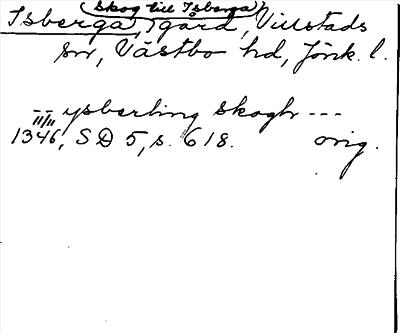 (skog till Isberga)
Isberga, gård, Villstads
sn, Västbo hd, Jönk. l.
-- ysberling skogh ---
11/11
1346, SD 5, s. 618. orig.